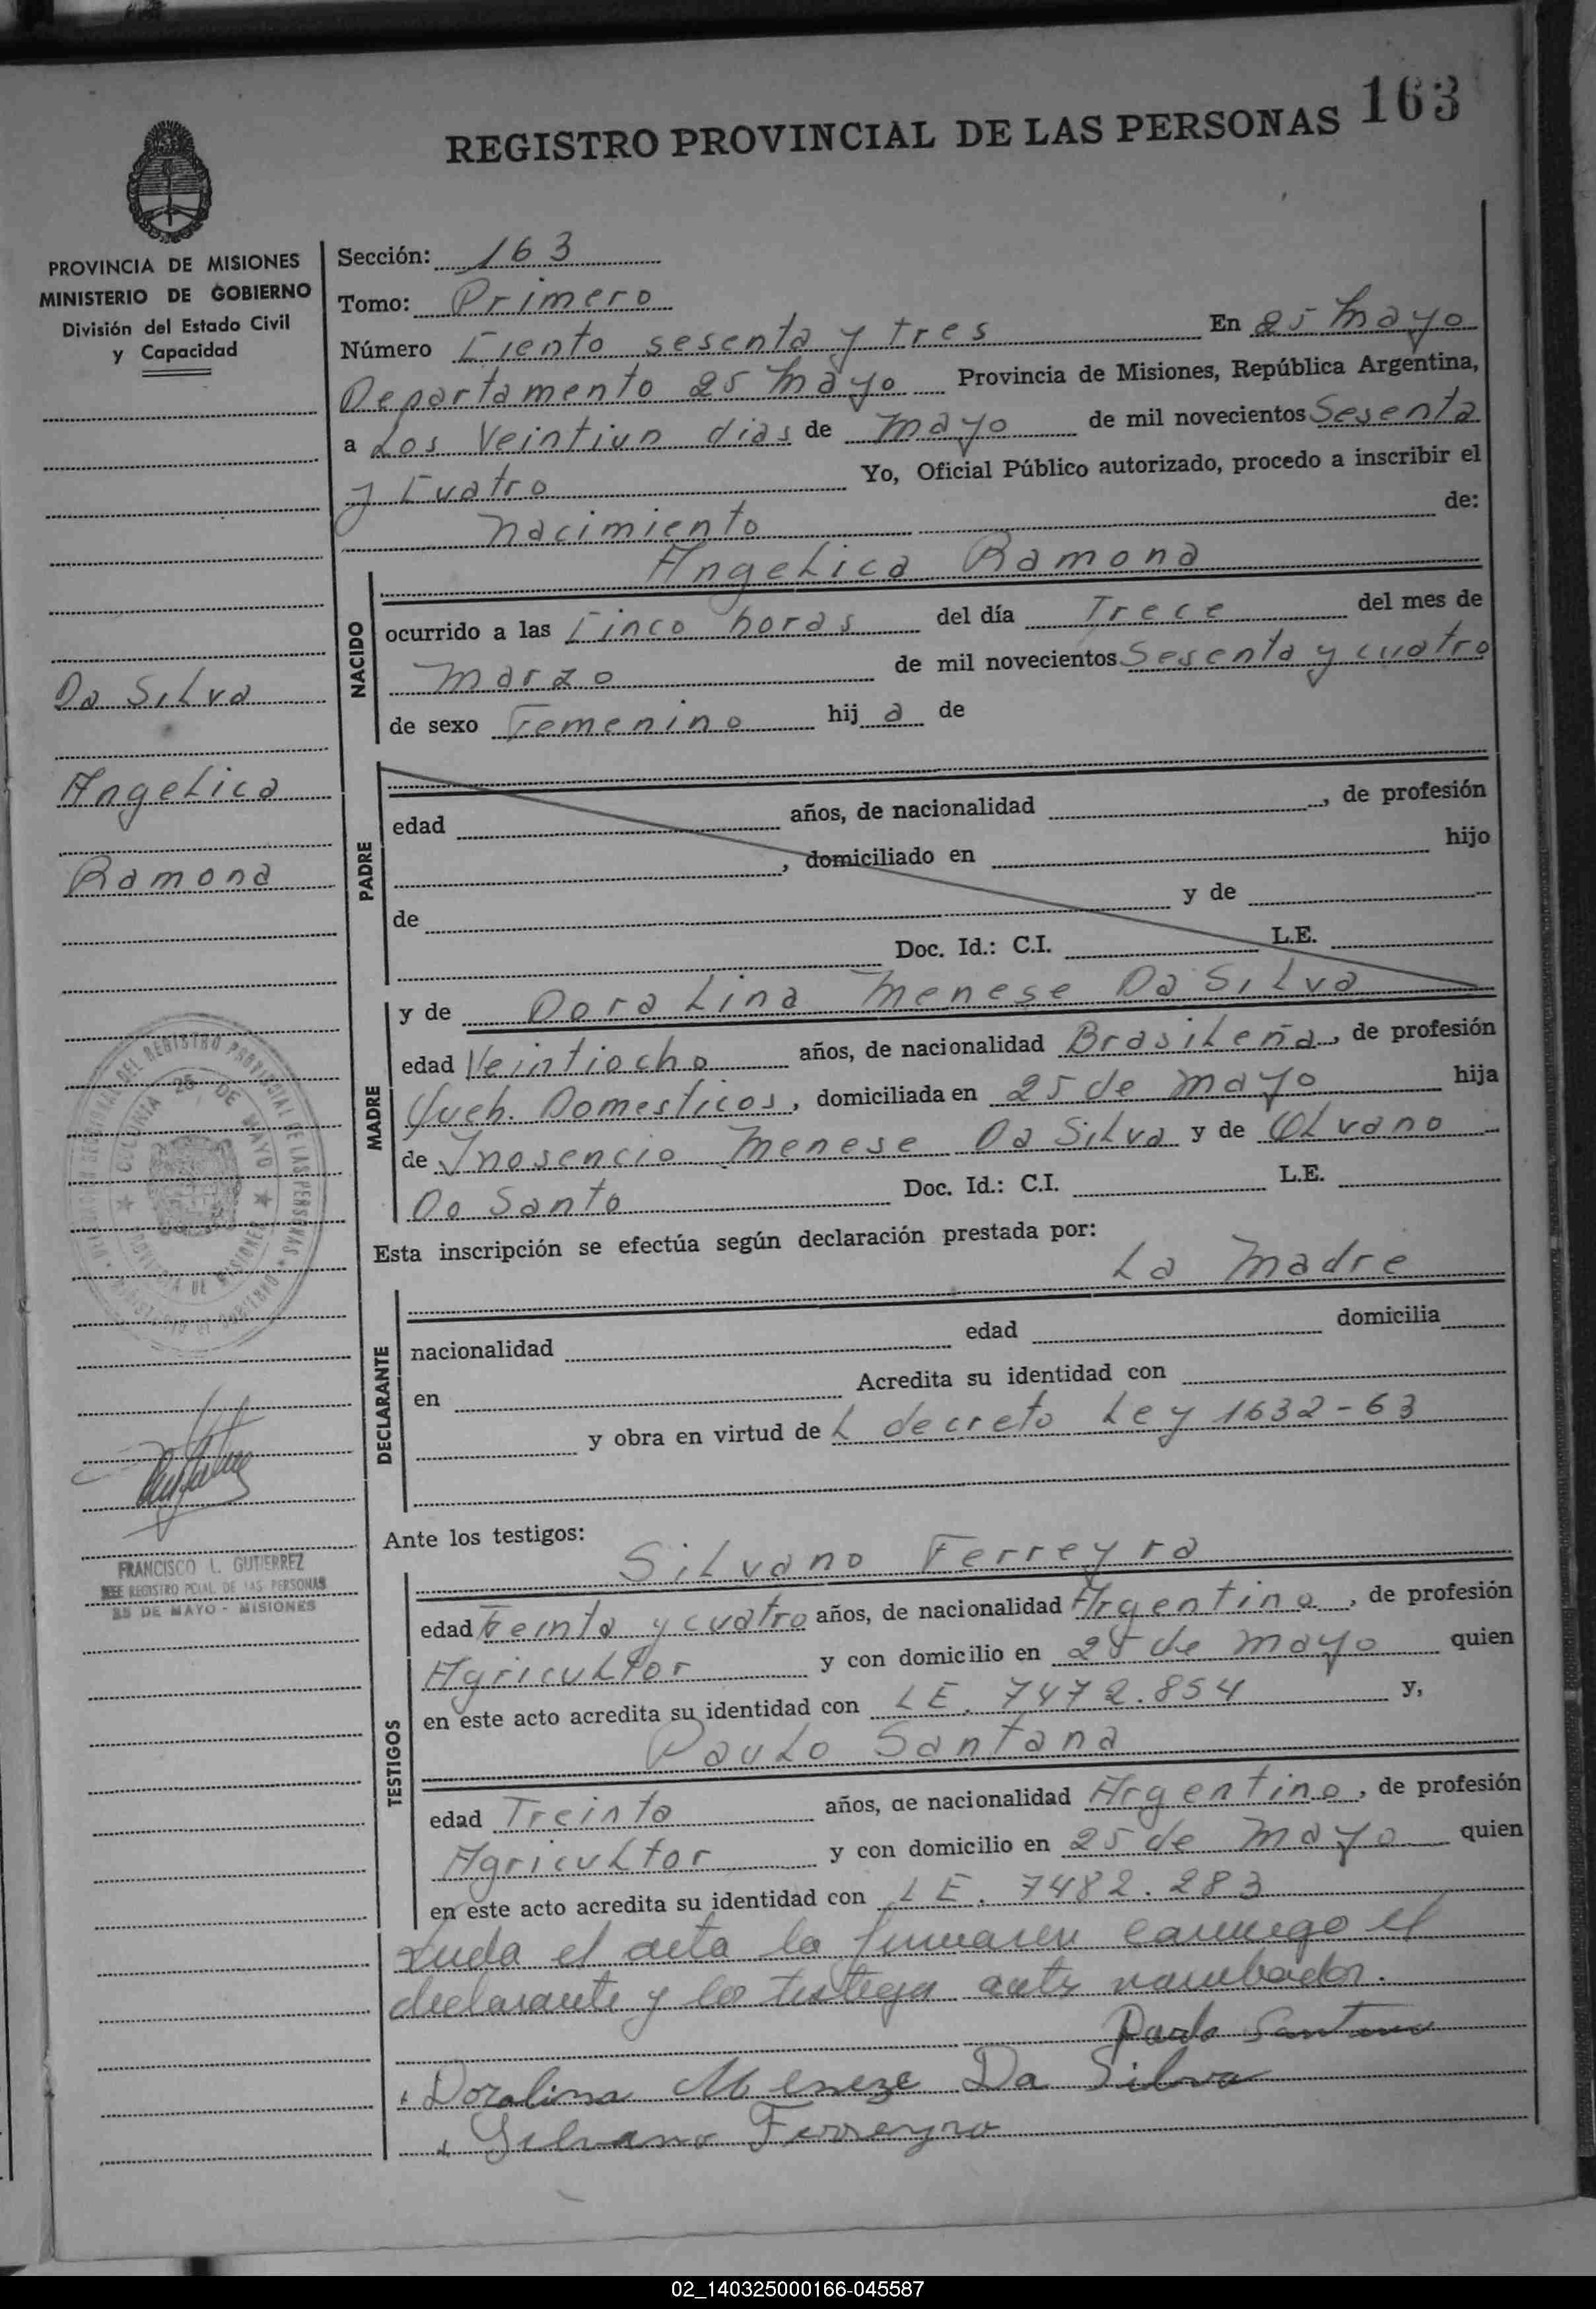 163
REGISTRO PROVINCIAL DE LAS PERSONAS
PROVINCIA DE MISIONES
MINISTERIO DE GOBIERNO
División del Estado Civil
y Capacidad
Da Silva
Angelica
Ramona
DELEGACION REGIONAL DEL REGISTRO PROVINCIAL DE LAS PERSONAS
COLONIA 25 DE MAYO
PROVINCIA DE MISIONES
MINISTERIO DE GOBIERNO
FRANCISCO L. GUTIERREZ
JEFE REGISTRO PCIAL. DE LAS PERSONAS
25 DE MAYO - MISIONES
Sección: 163
Tomo: Primero
Número Ciento sesenta y tres En 25 Mayo
Departamento 25 Mayo Provincia de Misiones, República Argentina,
a Los Veintiun dias de mayo de mil novecientos Sesenta
y Cuatro Yo, Oficial Público autorizado, procedo a inscribir el
nacimiento de:
NACIDO
Angelica Ramona
ocurrido a las Cinco horas del día Trece del mes de
marzo de mil novecientos Sesenta y cuatro
de sexo Femenino hij a de
PADRE
edad años, de nacionalidad , de profesión
, domiciliado en hijo
de y de
Doc. Id.: C.I. L.E.
MADRE
y de Dora Lina Menese Da Silva
edad Veintiocho años, de nacionalidad Brasileña, de profesión
Queh. Domesticos, domiciliada en 25 de mayo hija
de Inosencio Menese Da Silva y de Olvano
Do Santo Doc. Id.: C.I. L.E.
Esta inscripción se efectúa según declaración prestada por:
DECLARANTE
La Madre
nacionalidad edad domicilia
en Acredita su identidad con
y obra en virtud de L decreto Ley 1632-63
Ante los testigos:
TESTIGOS
Silvano Ferreyra
edad Treinta y cuatro años, de nacionalidad Argentino, de profesión
Agricultor y con domicilio en 25 de mayo quien
en este acto acredita su identidad con LE. 7472.854 y,
Paulo Santana
edad Treinta años, de nacionalidad Argentino, de profesión
Agricultor y con domicilio en 25 de mayo quien
en este acto acredita su identidad con LE. 7482.283
Leida el acta la firmaron conmigo el
declarante y los testigos antes nombrados.
Paulo Santana
Doralina Meneze Da Silva
Silvano Ferreyra
02_140325000166-045587